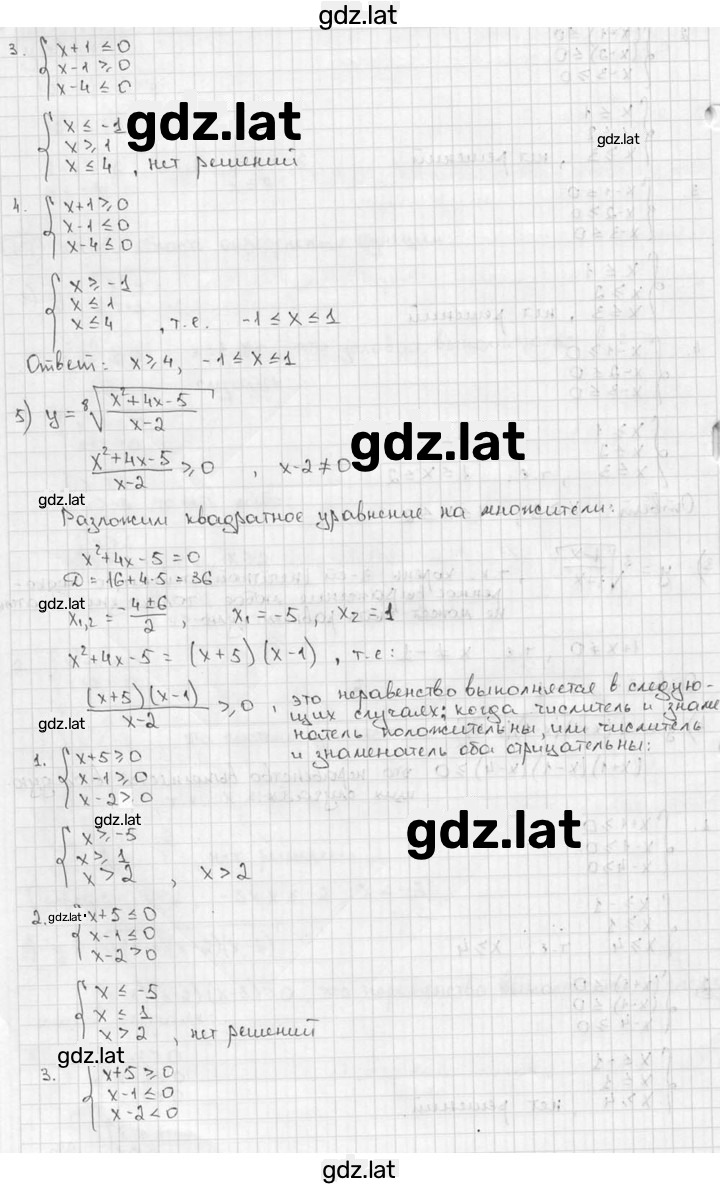 gdz.lat
3. { x+1 ≤ 0
x-1 ≥ 0
x-4 ≤ 0
gdz.lat
gdz.lat
{ x ≤ -1
x ≥ 1
x ≤ 4 , нет решений
4. { x+1 ≥ 0
x-1 ≤ 0
x-4 ≤ 0
{ x ≥ -1
x ≤ 1
x ≤ 4 , т.е. -1 ≤ x ≤ 1
Ответ: x ≥ 4, -1 ≤ x ≤ 1
5) y = ⁸√((x²+4x-5)/(x-2))
gdz.lat
(x²+4x-5)/(x-2) ≥ 0 , x-2 ≠ 0
gdz.lat
Разложим квадратное уравнение на множители:
x²+4x-5 = 0
D = 16+4·5 = 36
gdz.lat
x₁,₂ = (-4±6)/2 , x₁ = -5 , x₂ = 1
x²+4x-5 = (x+5)(x-1) , т.е:
((x+5)(x-1))/(x-2) ≥ 0 , это неравенство выполняется в следую-
щих случаях; когда числитель и знаме
gdz.lat
натель положительны, или числитель
и знаменатель оба отрицательны:
1. { x+5 ≥ 0
x-1 ≥ 0
x-2 > 0
gdz.lat
gdz.lat
{ x ≥ -5
x ≥ 1
x > 2 , x > 2
2. gdz.lat { x+5 ≤ 0
x-1 ≤ 0
x-2 > 0
{ x ≤ -5
x ≤ 1
x > 2 , нет решений
gdz.lat
3. { x+5 ≥ 0
x-1 ≤ 0
x-2 < 0
gdz.lat